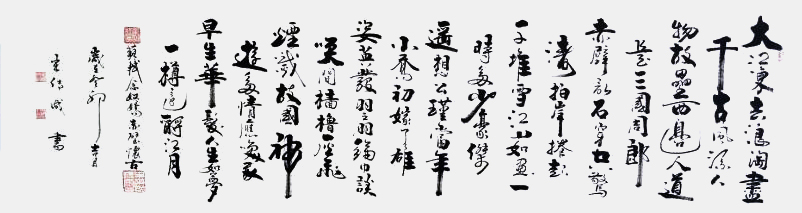 大江東去浪淘盡
千古風流人
物故壘西邊人道
是三國周郎
赤壁亂石穿空驚
濤拍岸捲起
千堆雪江山如畫一
時多少豪傑
遙想公瑾當年
小喬初嫁了雄
姿英發羽扇綸巾談
笑間檣櫓灰飛
煙滅故國神
遊多情應笑我
早生華髮人生如夢
一樽還酹江月
蘇軾念奴嬌赤壁懷古
歲在癸卯
書